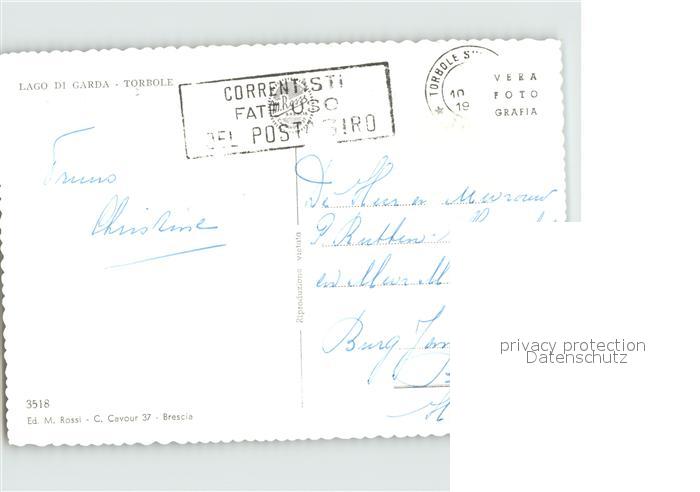 LAGO DI GARDA - TORBOLE
CORRENTISTI
FATE USO
DEL POSTAGIRO
TORBOLE
10
19
VERA
FOTO
GRAFIA
Christine
De Heer en Mevrouw
P. Rutten
en Mevr M
Burg
Riproduzione vietata
3518
Ed. M. Rossi - C. Cavour 37 - Brescia
privacy protection
Datenschutz